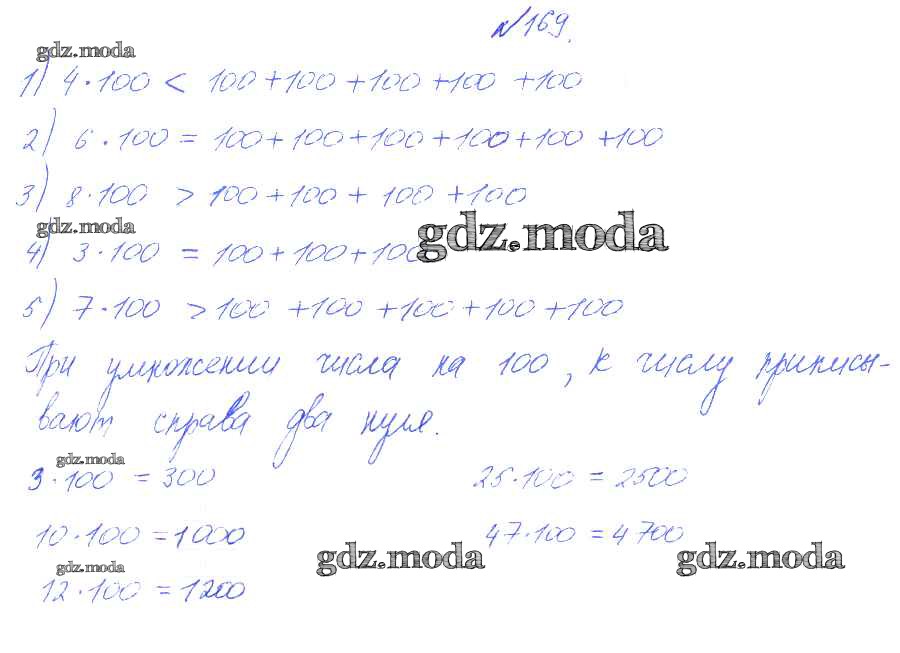 №169.
gdz.moda
1) 4·100 < 100+100+100+100+100
2) 6·100 = 100+100+100+100+100+100
3) 8·100 > 100+100+100+100
gdz.moda
gdz.moda
4) 3·100 = 100+100+100
5) 7·100 > 100+100+100+100+100
При умножении числа на 100, к числу приписы-
вают справа два нуля.
gdz.moda
3·100 = 300 25·100 = 2500
10·100 = 1000 47·100 = 4700
gdz.moda gdz.moda gdz.moda
12·100 = 1200